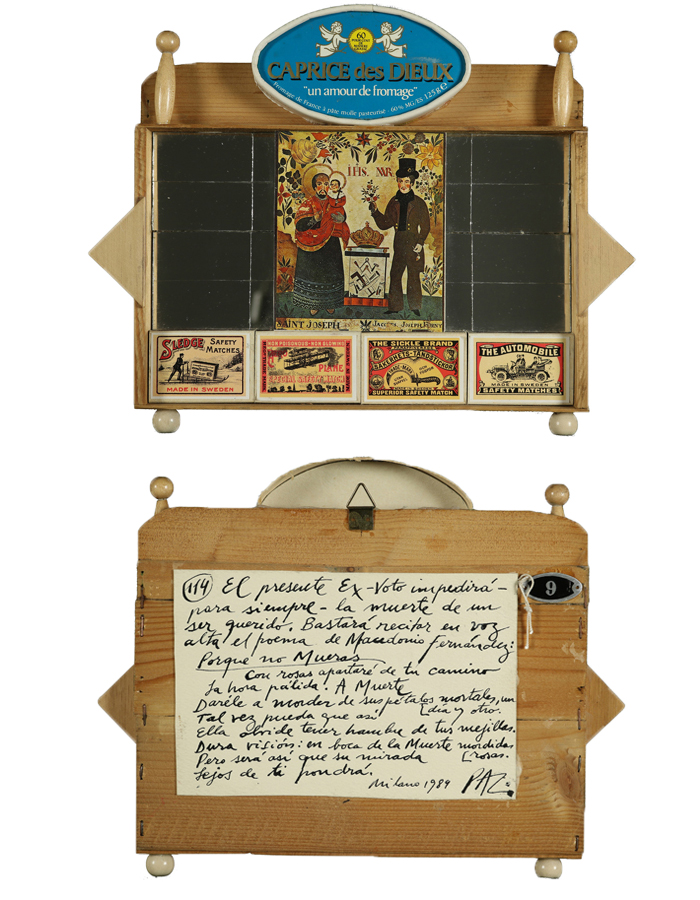 60
CAPRICE des DIEUX
"un amour de fromage"
Fromage de France à pâte molle pasteurisé - 60% MG/ES 125g e
IHS. MR
SAINT JOSEPH
SLEDGE SAFETY
MATCHES
MADE IN SWEDEN
NON POISONOUS-NON GLOWING
PLANE
SPECIAL SAFETY MATCH
THE SICKLE BRAND
SÄKERHETS-TÄNDSTICKOR
SUPERIOR SAFETY MATCH
THE AUTOMOBILE
MADE IN SWEDEN
SAFETY MATCHES
9
114 El presente Ex-Voto impedirá-
para siempre - la muerte de un
ser querido. Bastará recitar en voz
alta el poema de Macedonio Fernández:
Porque no Mueras
Con rosas apartaré de tu camino
la hora pálida. A Muerte
Daréle a morder de sus pétalos mortales, un
Tal vez pueda que así [día y otro.
Ella olvide tener hambre de tus mejillas.
Dura visión: en boca de la Muerte mordidas
Pero será así que su mirada [rosas.
Lejos de ti pondrá.
Milano 1989 PAZ.